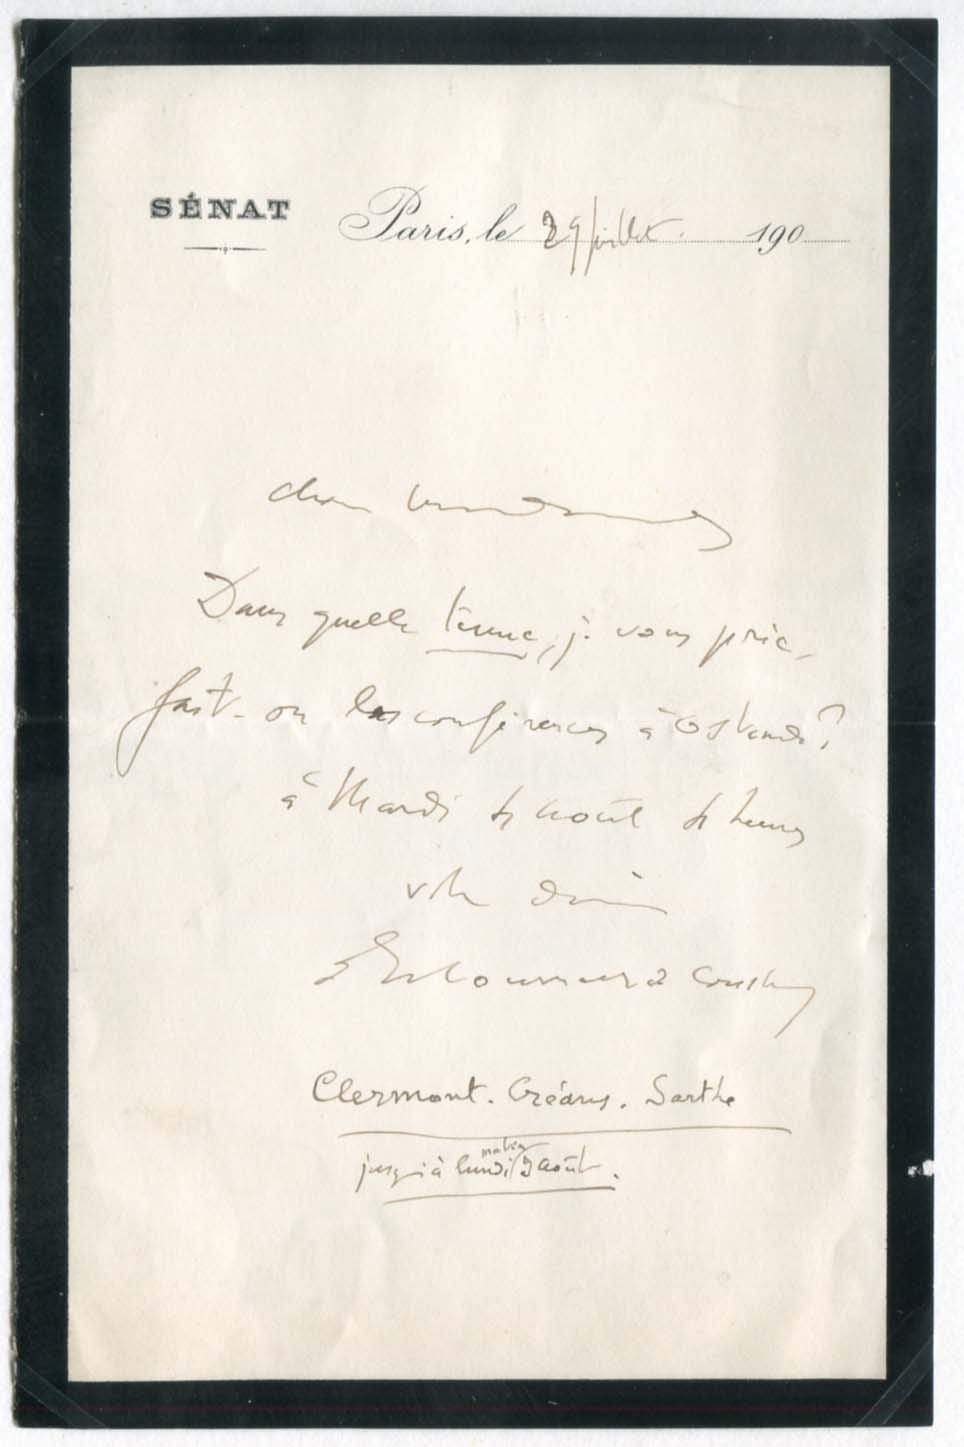 SÉNAT
Paris, le 29 juillet 190
cher
Dans quelle tenue, je vous prie,
fait-on les conférences à Ostende?
à Mardi 4 août 4 heures
votre
d'Estournelles de Constant
Clermont. Créans. Sarthe
jusqu'à lundi matin 3 août.